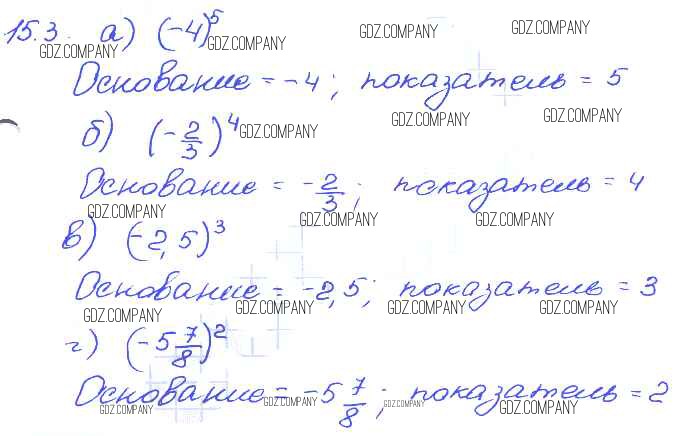 15.3. а) (-4)^5
GDZ.COMPANY GDZ.COMPANY GDZ.COMPANY GDZ.COMPANY
Основание = -4; показатель = 5
б) (-2/3)^4
GDZ.COMPANY GDZ.COMPANY GDZ.COMPANY
Основание = -2/3; показатель = 4
GDZ.COMPANY GDZ.COMPANY GDZ.COMPANY
в) (-2,5)^3
Основание = -2,5; показатель = 3
GDZ.COMPANY GDZ.COMPANY GDZ.COMPANY GDZ.COMPANY
г) (-5 7/8)^2
Основание = -5 7/8; показатель = 2
GDZ.COMPANY GDZ.COMPANY GDZ.COMPANY GDZ.COMPANY